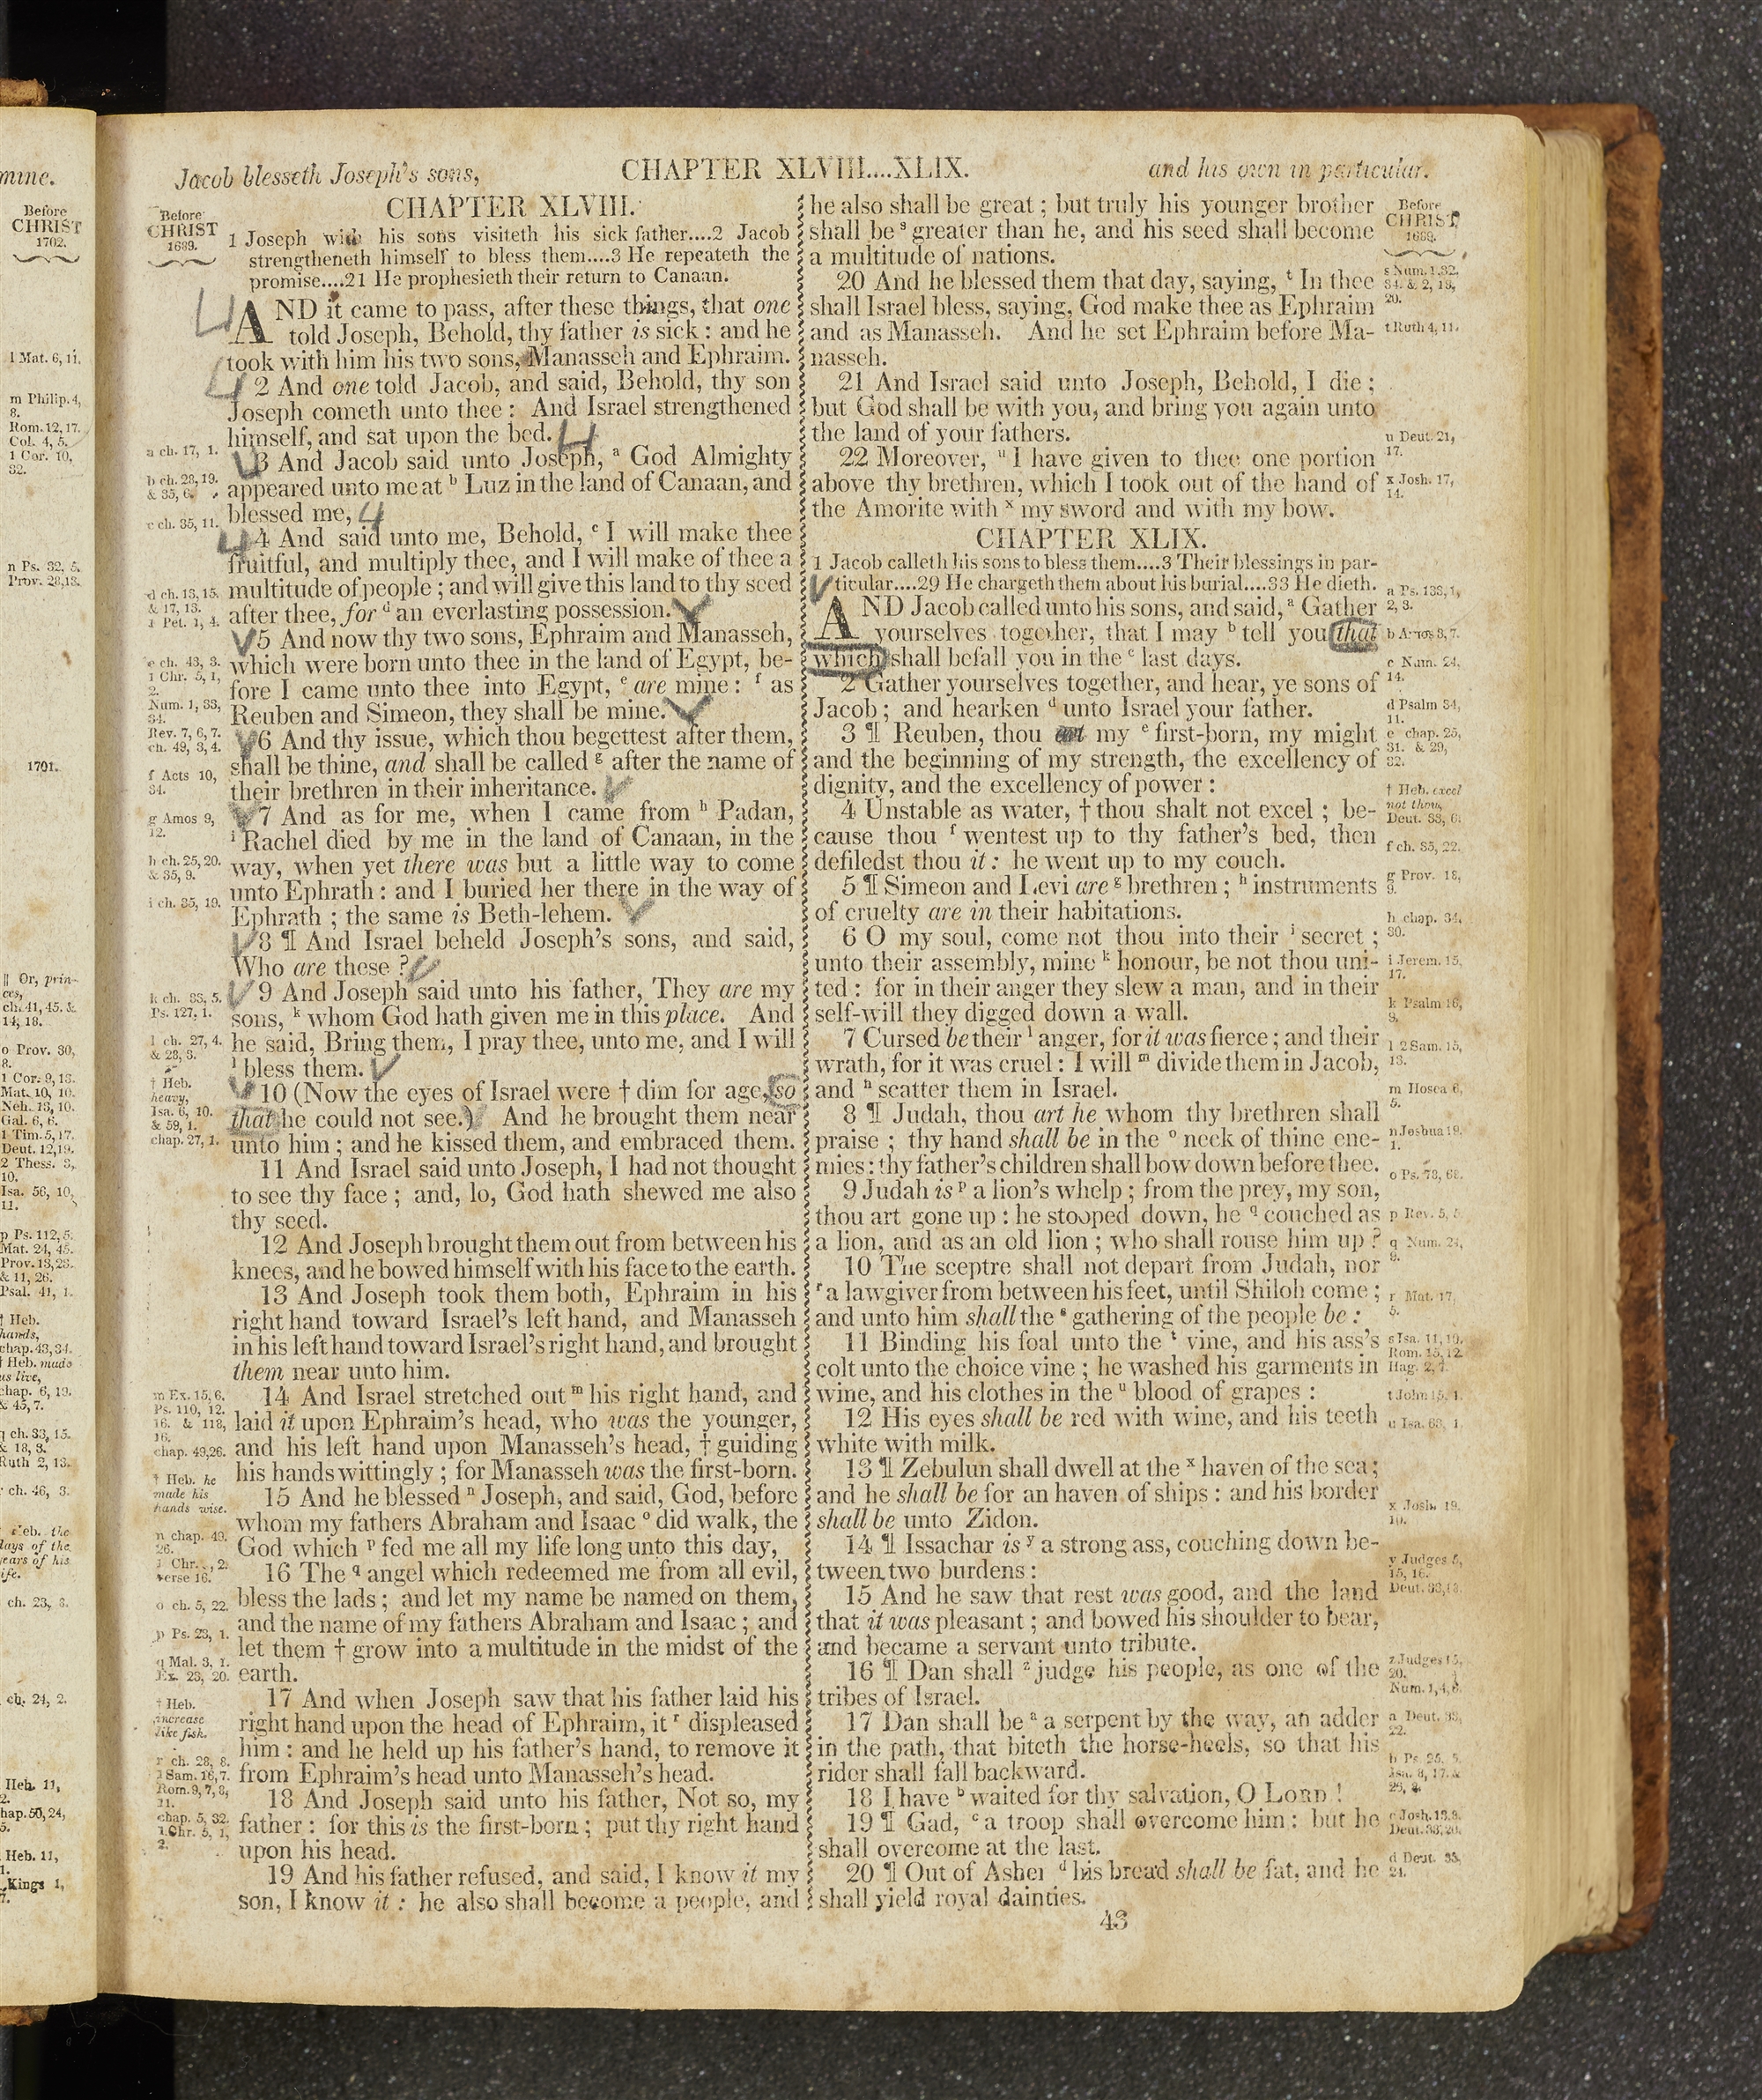 mine.
Before
CHRIST
1702.
1 Mat. 6, 11.
m Philip. 4,
8.
Rom. 12, 17.
Col. 4, 5.
1 Cor. 10,
32.
n Ps. 32, 5.
Prov. 28,13.
1701.
|| Or, prin-
ces,
ch. 41, 45. &
14, 18.
o Prov. 30,
8.
1 Cor. 9, 13.
Mat. 10, 10.
Neh. 13, 10.
Gal. 6, 6.
1 Tim. 5, 17.
Deut. 12,19.
2 Thess. 3,
10.
Isa. 56, 10,
11.
p Ps. 112, 5.
Mat. 24, 45.
Prov. 13,23.
& 11, 26.
Psal. 41, 1.
† Heb.
hands,
chap. 43,34.
† Heb. made
us live,
chap. 6, 19.
& 45, 7.
q ch. 33, 15.
& 18, 3.
Ruth 2, 13.
ch. 46, 3.
Heb. the
days of the
years of his
life.
ch. 23, 3.
ch. 24, 2.
Heb. 11,
2.
chap. 50, 24,
5.
Heb. 11,
1.
Kings 1,
7.
Jacob blesseth Joseph's sons,
CHAPTER XLVIII....XLIX.
and his own in particular.
Before
CHRIST
1689.
CHAPTER XLVIII.
1 Joseph with his sons visiteth his sick father....2 Jacob
strengtheneth himself to bless them....3 He repeateth the
promise....21 He prophesieth their return to Canaan.
AND it came to pass, after these things, that one
told Joseph, Behold, thy father is sick: and he
took with him his two sons, Manasseh and Ephraim.
2 And one told Jacob, and said, Behold, thy son
Joseph cometh unto thee: And Israel strengthened
himself, and sat upon the bed.
3 And Jacob said unto Joseph, a God Almighty
appeared unto me at b Luz in the land of Canaan, and
blessed me,
4 And said unto me, Behold, c I will make thee
fruitful, and multiply thee, and I will make of thee a
multitude of people; and will give this land to thy seed
after thee, for d an everlasting possession.
5 And now thy two sons, Ephraim and Manasseh,
which were born unto thee in the land of Egypt, be-
fore I came unto thee into Egypt, e are mine: f as
Reuben and Simeon, they shall be mine.
6 And thy issue, which thou begettest after them,
shall be thine, and shall be called g after the name of
their brethren in their inheritance.
7 And as for me, when I came from h Padan,
i Rachel died by me in the land of Canaan, in the
way, when yet there was but a little way to come
unto Ephrath: and I buried her there in the way of
Ephrath; the same is Beth-lehem.
8 ¶ And Israel beheld Joseph's sons, and said,
Who are these?
9 And Joseph said unto his father, They are my
sons, k whom God hath given me in this place. And
he said, Bring them, I pray thee, unto me, and I will
l bless them.
10 (Now the eyes of Israel were † dim for age, so
that he could not see.) And he brought them near
unto him; and he kissed them, and embraced them.
11 And Israel said unto Joseph, I had not thought
to see thy face; and, lo, God hath shewed me also
thy seed.
12 And Joseph brought them out from between his
knees, and he bowed himself with his face to the earth.
13 And Joseph took them both, Ephraim in his
right hand toward Israel's left hand, and Manasseh
in his left hand toward Israel's right hand, and brought
them near unto him.
14 And Israel stretched out m his right hand, and
laid it upon Ephraim's head, who was the younger,
and his left hand upon Manasseh's head, † guiding
his hands wittingly; for Manasseh was the first-born.
15 And he blessed n Joseph, and said, God, before
whom my fathers Abraham and Isaac o did walk, the
God which p fed me all my life long unto this day,
16 The q angel which redeemed me from all evil,
bless the lads; and let my name be named on them,
and the name of my fathers Abraham and Isaac; and
let them † grow into a multitude in the midst of the
earth.
17 And when Joseph saw that his father laid his
right hand upon the head of Ephraim, it r displeased
him: and he held up his father's hand, to remove it
from Ephraim's head unto Manasseh's head.
18 And Joseph said unto his father, Not so, my
father: for this is the first-born; put thy right hand
upon his head.
19 And his father refused, and said, I know it my
son, I know it: he also shall become a people, and
a ch. 17, 1.
b ch. 28, 19.
& 35, 6.
c ch. 35, 11.
d ch. 13, 15.
& 17, 13.
1 Pet. 1, 4.
e ch. 43, 3.
1 Chr. 5, 1,
2.
Num. 1, 33,
34.
Rev. 7, 6, 7.
ch. 49, 3, 4.
f Acts 10,
34.
g Amos 9,
12.
h ch. 25, 20.
& 35, 9.
i ch. 35, 19.
k ch. 33, 5.
Ps. 127, 1.
l ch. 27, 4.
& 28, 3.
† Heb.
heavy,
Isa. 6, 10.
& 59, 1.
chap. 27, 1.
m Ex. 15, 6.
Ps. 110, 12.
16. & 118,
16.
chap. 49,26.
† Heb. he
made his
hands wise.
n chap. 49.
26.
1 Chr. , 2.
verse 16.
o ch. 5, 22.
p Ps. 23, 1.
q Mal. 3, 1.
Ex. 23, 20.
† Heb.
increase
like fish.
r ch. 28, 8.
1 Sam. 16,7.
Rom. 9, 7, 8,
11.
chap. 5, 32.
1 Chr. 5, 1,
2.
he also shall be great; but truly his younger brother
shall be s greater than he, and his seed shall become
a multitude of nations.
20 And he blessed them that day, saying, t In thee
shall Israel bless, saying, God make thee as Ephraim
and as Manasseh. And he set Ephraim before Ma-
nasseh.
21 And Israel said unto Joseph, Behold, I die;
but God shall be with you, and bring you again unto
the land of your fathers.
22 Moreover, u I have given to thee one portion
above thy brethren, which I took out of the hand of
the Amorite with x my sword and with my bow.
CHAPTER XLIX.
1 Jacob calleth his sons to bless them....3 Their blessings in par-
ticular....29 He chargeth them about his burial....33 He dieth.
AND Jacob called unto his sons, and said, a Gather
yourselves together, that I may b tell you that
which shall befall you in the c last days.
2 Gather yourselves together, and hear, ye sons of
Jacob; and hearken d unto Israel your father.
3 ¶ Reuben, thou art my e first-born, my might
and the beginning of my strength, the excellency of
dignity, and the excellency of power:
4 Unstable as water, † thou shalt not excel; be-
cause thou f wentest up to thy father's bed, then
defiledst thou it: he went up to my couch.
5 ¶ Simeon and Levi are g brethren; h instruments
of cruelty are in their habitations.
6 O my soul, come not thou into their i secret;
unto their assembly, mine k honour, be not thou uni-
ted: for in their anger they slew a man, and in their
self-will they digged down a wall.
7 Cursed be their l anger, for it was fierce; and their
wrath, for it was cruel: I will m divide them in Jacob,
and n scatter them in Israel.
8 ¶ Judah, thou art he whom thy brethren shall
praise; thy hand shall be in the o neck of thine ene-
mies: thy father's children shall bow down before thee.
9 Judah is p a lion's whelp; from the prey, my son,
thou art gone up: he stooped down, he q couched as
a lion, and as an old lion; who shall rouse him up?
10 The sceptre shall not depart from Judah, nor
r a lawgiver from between his feet, until Shiloh come;
and unto him shall the s gathering of the people be:
11 Binding his foal unto the t vine, and his ass's
colt unto the choice vine; he washed his garments in
wine, and his clothes in the u blood of grapes:
12 His eyes shall be red with wine, and his teeth
white with milk.
13 ¶ Zebulun shall dwell at the x haven of the sea;
and he shall be for an haven of ships: and his border
shall be unto Zidon.
14 ¶ Issachar is y a strong ass, couching down be-
tween two burdens:
15 And he saw that rest was good, and the land
that it was pleasant; and bowed his shoulder to bear,
and became a servant unto tribute.
16 ¶ Dan shall z judge his people, as one of the
tribes of Israel.
17 Dan shall be a a serpent by the way, an adder
in the path, that biteth the horse-heels, so that his
rider shall fall backward.
18 I have b waited for thy salvation, O LORD!
19 ¶ Gad, c a troop shall overcome him: but he
shall overcome at the last.
20 ¶ Out of Asher d his bread shall be fat, and he
shall yield royal dainties.
Before
CHRIST
1689.
s Num. 1,32,
34. & 2, 19,
20.
t Ruth 4, 11.
u Deut. 21,
17.
x Josh. 17,
14.
a Ps. 133, 1,
2, 3.
b Amos 3, 7.
c Num. 24,
14.
d Psalm 34,
11.
e chap. 25,
31. & 29,
32.
† Heb. excel
not thou,
Deut. 33, 6.
f ch. 35, 22.
g Prov. 18,
9.
h chap. 34,
30.
i Jerem. 15,
17.
k Psalm 16,
9.
l 2 Sam. 15,
13.
m Hosea 6,
5.
n Joshua 19,
1.
o Ps. 78, 68.
p Rev. 5, 5.
q Num. 24,
9.
r Mat. 17,
5.
s Isa. 11, 10.
Rom. 15, 12.
Hag. 2, 7.
t John 15, 1.
u Isa. 63, 1.
x Josh. 19,
10.
y Judges 5,
15, 16.
Deut. 33,18.
z Judges 15,
20.
Num. 1,4,6.
a Deut. 33,
22.
b Ps. 25, 5.
Isa. 8, 17. &
25, 9.
c Josh. 13,8.
Deut. 33,20.
d Deut. 33,
24.
43